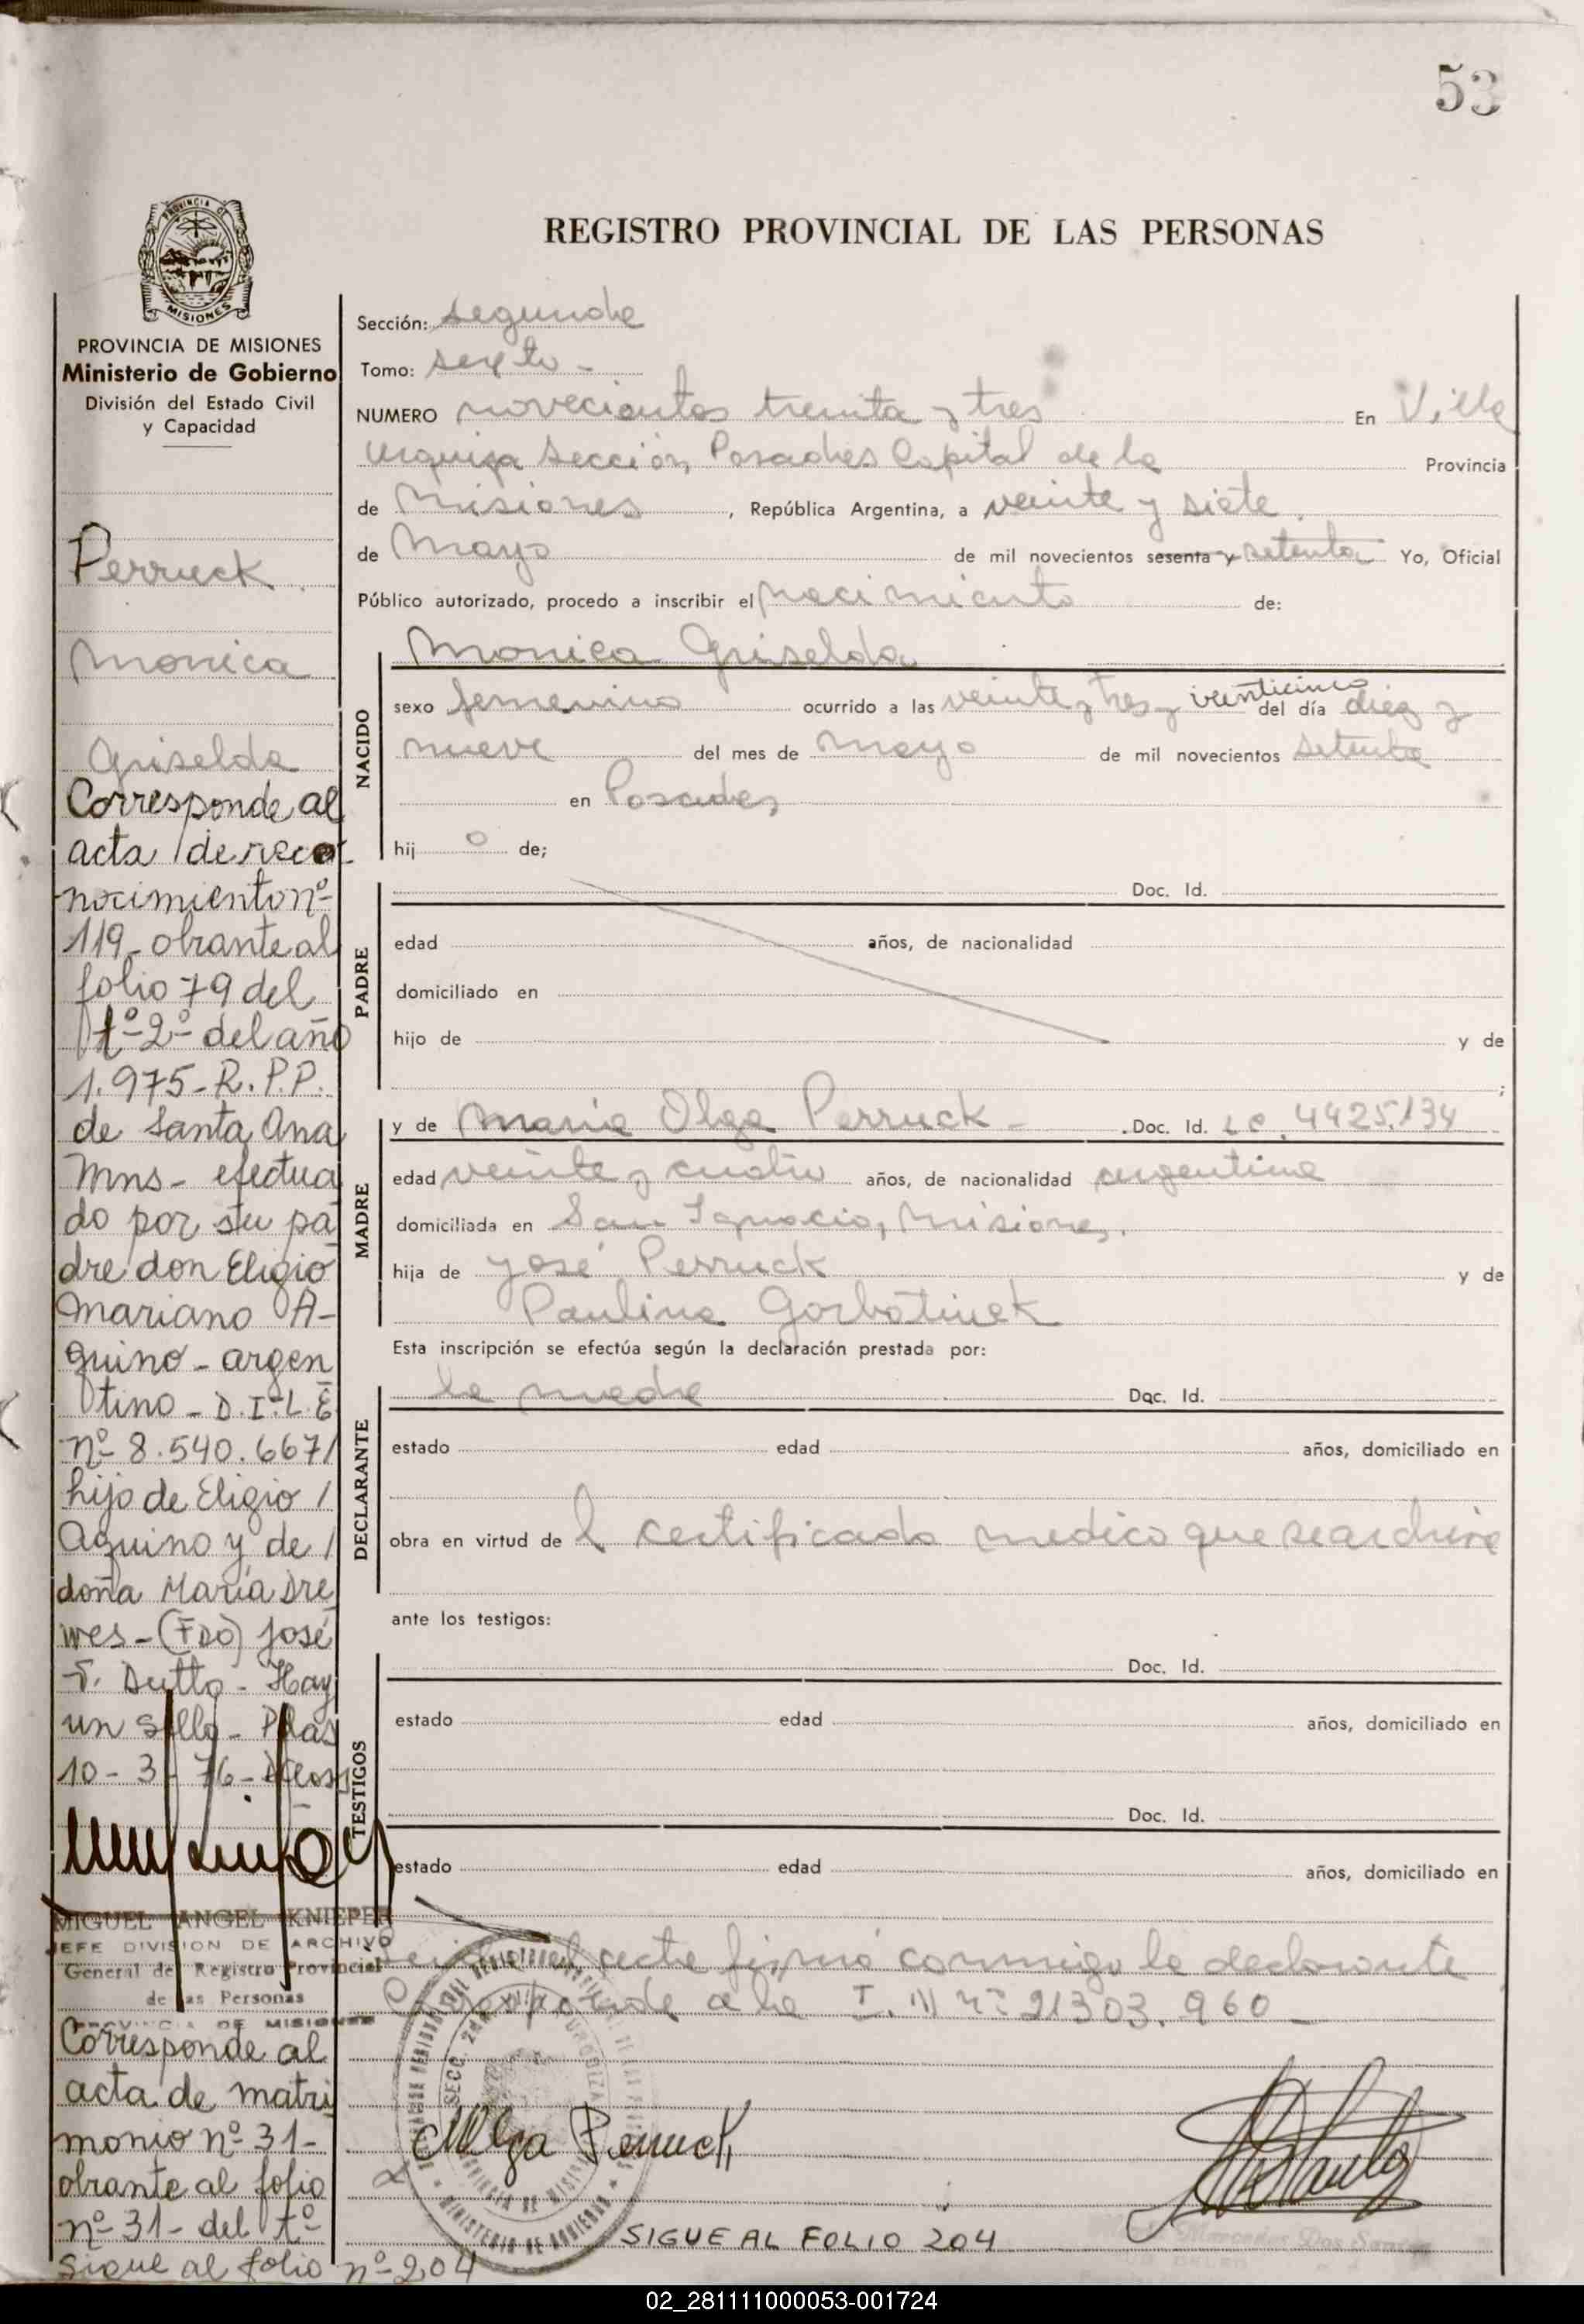 53
PROVINCIA DE
MISIONES
REGISTRO PROVINCIAL DE LAS PERSONAS
PROVINCIA DE MISIONES
Ministerio de Gobierno
División del Estado Civil
y Capacidad
Perruck
Monica
Griselda
Corresponde al
acta de reco
nocimiento nº
119 - obrante al
folio 79 del
tº 2º del año
1.975 - R.P.P.
de Santa Ana
Mns - efectua
do por su pa
dre don Eligio
Mariano A-
quino - argen
tino - D.I. - L.E
nº 8.540.667/
hijo de Eligio /
Aquino y de /
doña María Dre
wes - (FDO) José
F. Dutto - Hay
un sello - Pdas
10 - 3 - 76 -
MIGUEL ANGEL KNIEPER
JEFE DIVISION DE ARCHIVO
General del Registro Provincial
de las Personas
PROVINCIA DE MISIONES
Corresponde al
acta de matri
monio nº 31 -
obrante al folio
nº 31 - del tº
sigue al folio nº 204
Sección: segunda
Tomo: sexto -
NUMERO novecientos treinta y tres En Villa
Urquiza Sección, Posadas Capital de la Provincia
de Misiones, República Argentina, a veinte y siete
de Mayo de mil novecientos sesenta y setenta Yo, Oficial
Público autorizado, procedo a inscribir el nacimiento de:
Monica Griselda
NACIDO
sexo femenino ocurrido a las veinte y tres y veinticinco del día diez y
nueve del mes de mayo de mil novecientos setenta
en Posadas
hij o de;
PADRE
Doc. Id.
edad años, de nacionalidad
domiciliado en
hijo de y de
;
MADRE
y de María Olga Perruck - Doc. Id. L.C. 4425.134
edad veinte y cuatro años, de nacionalidad argentina
domiciliada en San Ignacio, Misiones.
hija de José Perruck y de
Paulina Gorbatiuek
Esta inscripción se efectúa según la declaración prestada por:
DECLARANTE
la madre Doc. Id.
estado edad años, domiciliado en
obra en virtud de l certificado medico que se archiva
ante los testigos:
TESTIGOS
Doc. Id.
estado edad años, domiciliado en
Doc. Id.
estado edad años, domiciliado en
el acta firmó conmigo la declarante
Corresponde a la I. M nº 21303.960 -
SECC. 2da. VILLA URQUIZA
MINISTERIO DE GOBIERNO
M Olga Perruck
SIGUE AL FOLIO 204
Mercedes Dos Santos
02_281111000053-001724